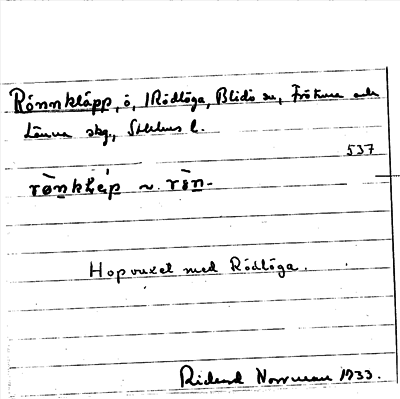 Rönnkläpp, ö, i Rödlöga, Blidö sn, Frötuna och
Länna skg, Sthlms l.
537
rø̀nkɫep ~ rön-
Hopvuxet med Rödlöga.
Rickard Norrman 1933.